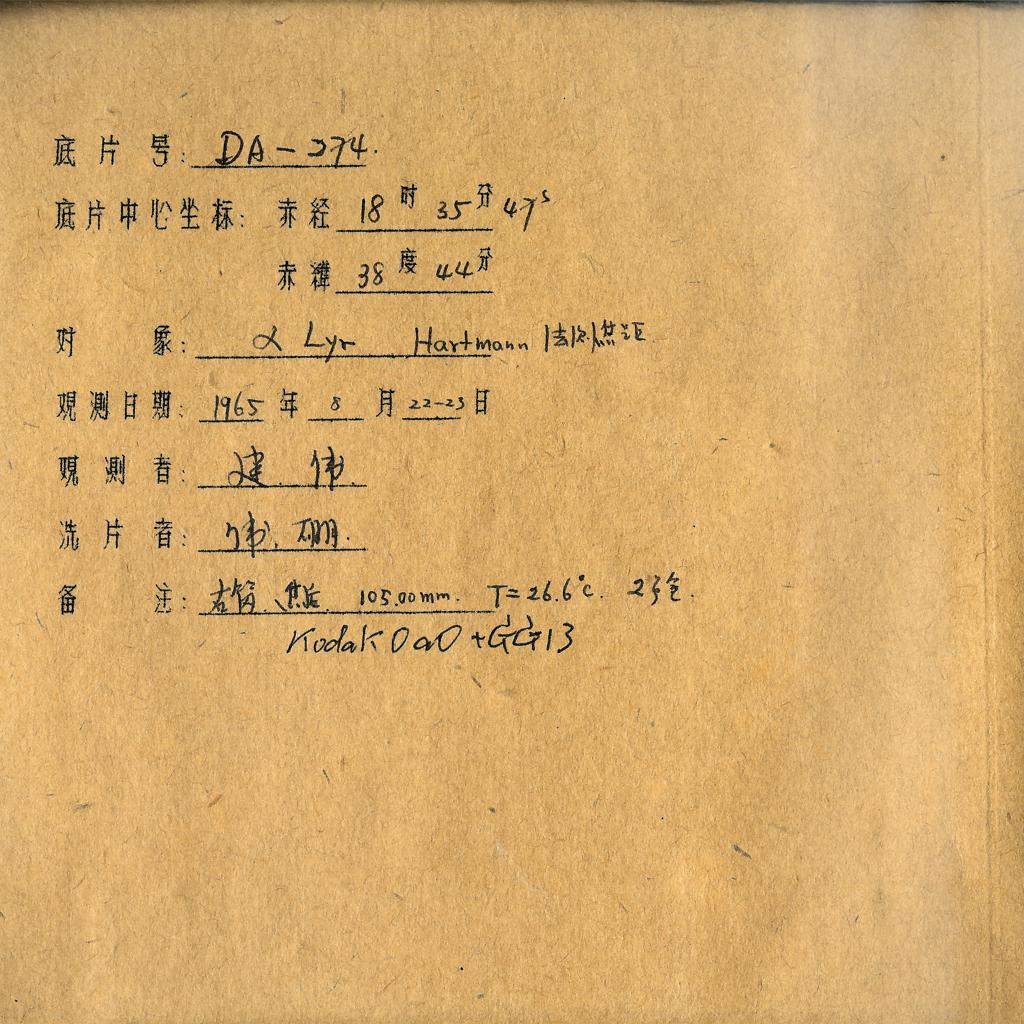 底片号: DA-274.
底片中心坐标: 赤经 18时 35分 47s
赤纬 38度 44分
对象: α Lyr Hartmann 法测焦距
观测日期: 1965年 8月 22-23日
观测者: 建 伟.
洗片者: 伟. 硼.
备注: 右筒、焦后 105.00mm. T=26.6°C. 2号仓.
Kodak OaO + GG13